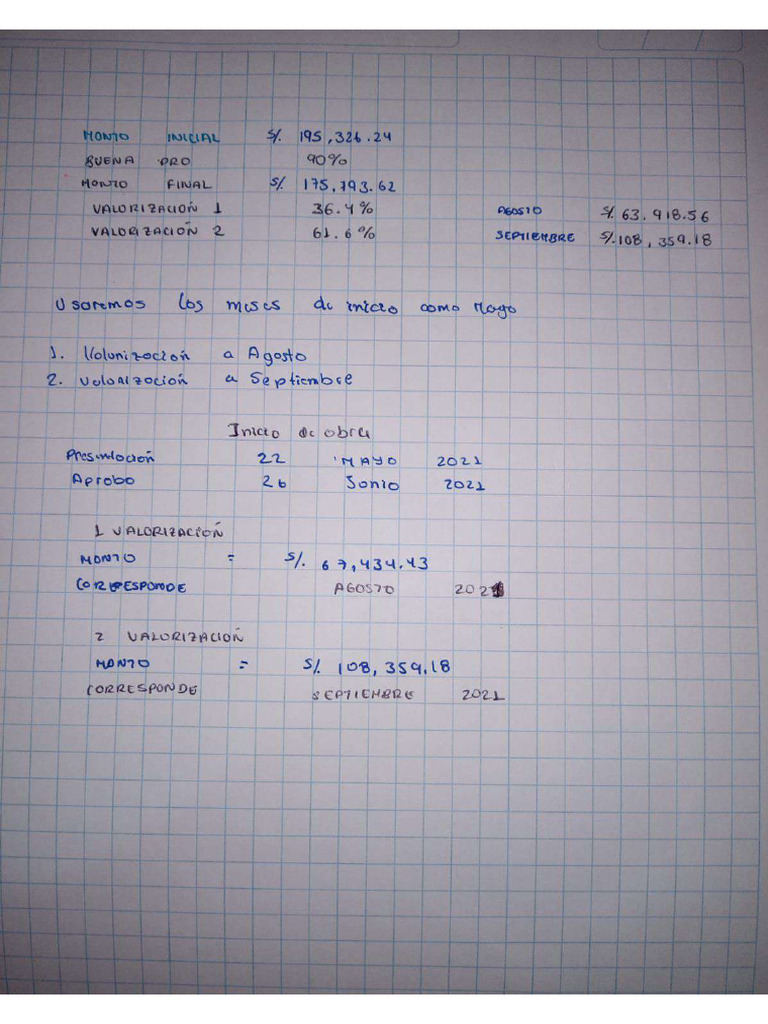 MONTO INICIAL S/. 195,326.24
BUENA PRO 90%
MONTO FINAL S/. 175,793.62
VALORIZACIÓN 1 36.4% AGOSTO S/. 63,918.56
VALORIZACIÓN 2 61.6% SEPTIEMBRE S/. 108,359.18
Usaremos los meses de inicio como Mayo
1. Valorización a Agosto
2. Valorización a Septiembre
Inicio de obra
Presentación 22 MAYO 2021
Aprobo 26 Junio 2021
1 VALORIZACIÓN
MONTO = S/. 67,434.43
CORRESPONDE AGOSTO 2021
2 VALORIZACIÓN
MONTO = S/. 108,359.18
CORRESPONDE SEPTIEMBRE 2021